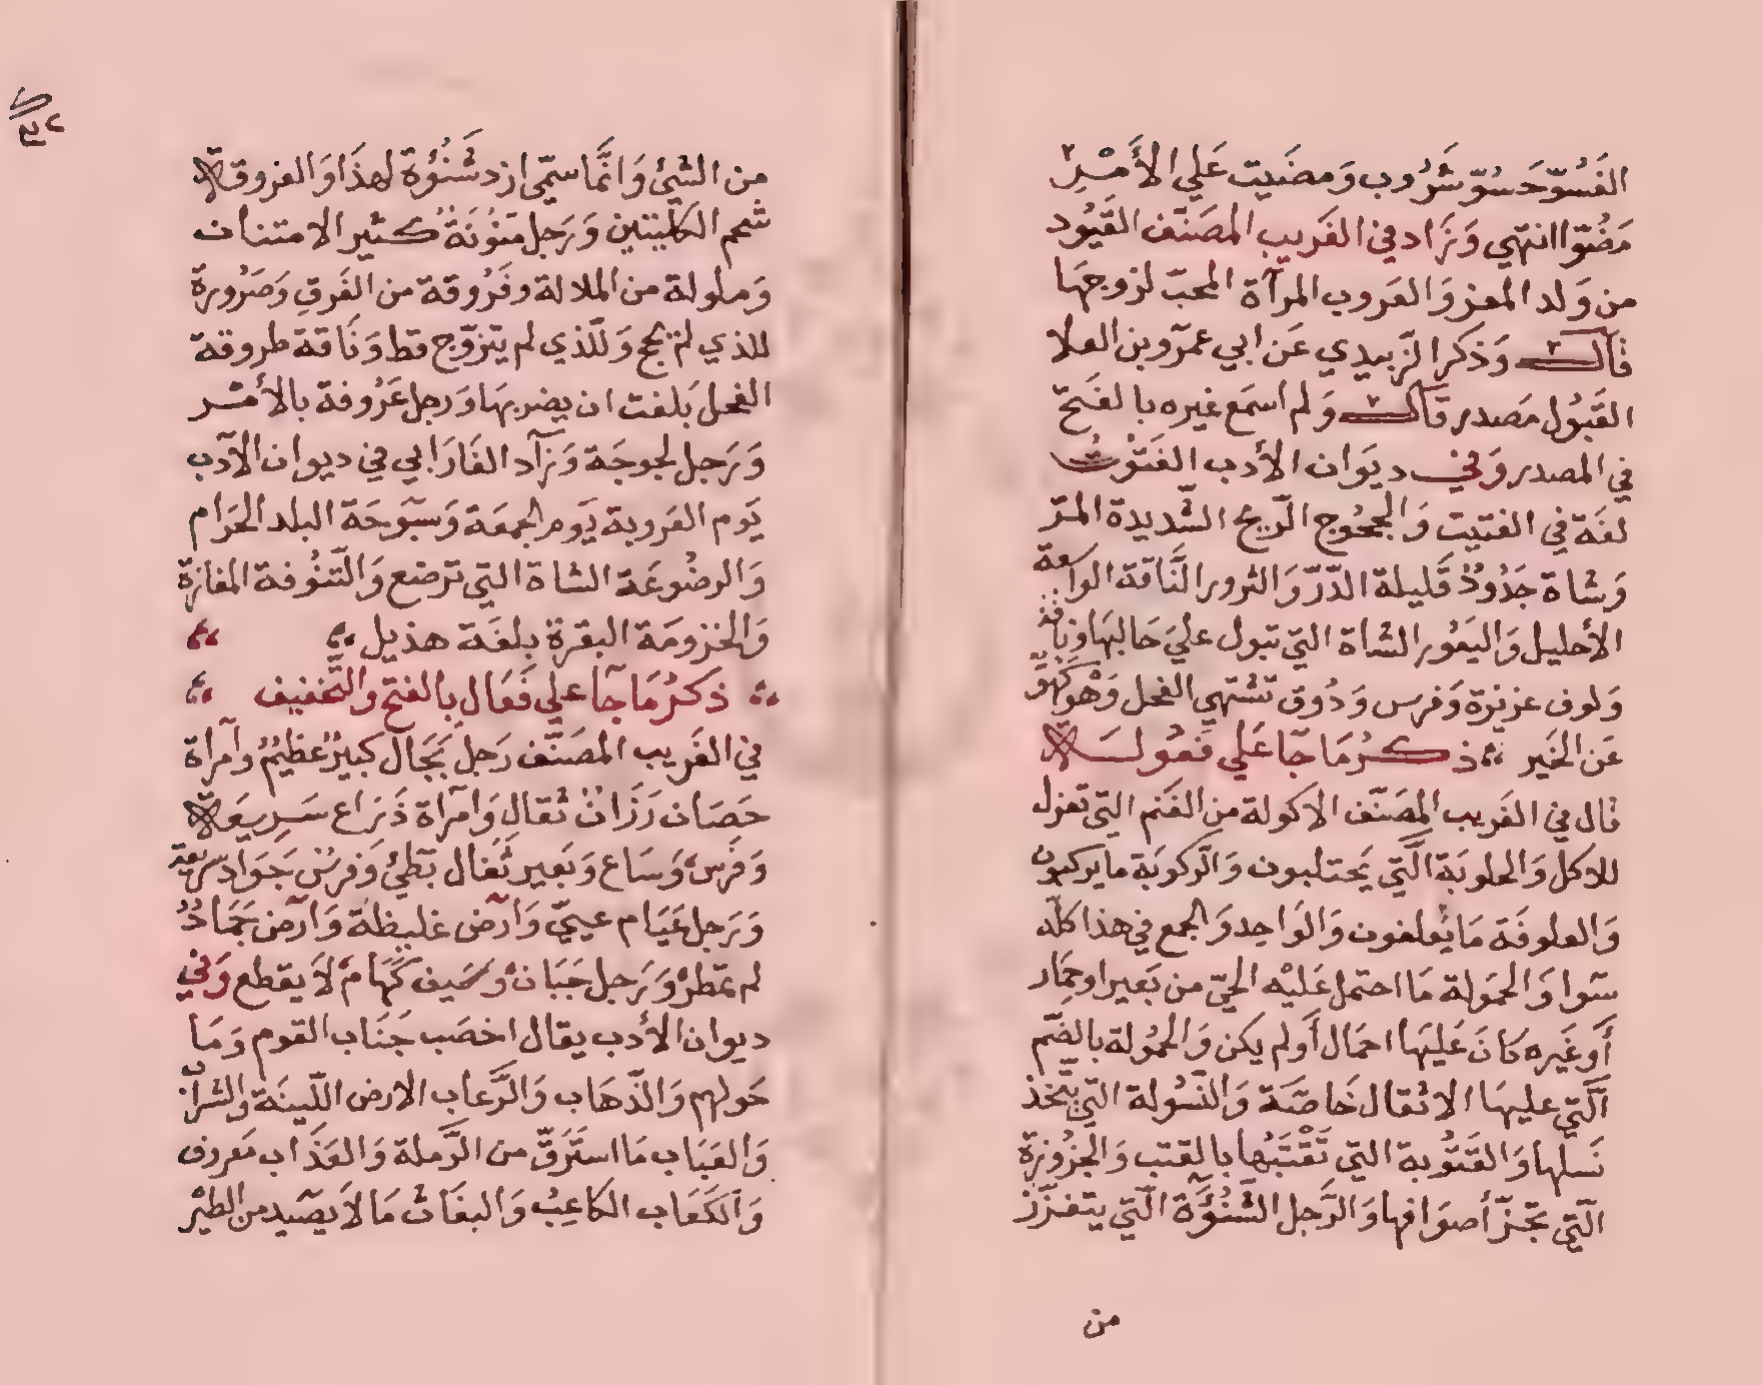 الفَسُوّ حَسُوّ شَرُوب وَمضَيت عَلي الأمْرِ
مَضُوّا انتهي وَزَاد في الغَريب المصَنّف القَيُود
من وَلد المعز وَالعَروب المرآة المحبّ لزوجهَا
قال وَذكر الزّبيدي عَن ابي عمرو بن العلا
القَبُول مصدر قال وَلم اسمَع غيره بالفَتح
في المصدر وَفي ديوَان الأدب الفَتُوت
لغَة في الفتيت وَالجحُوج الرّيح الشّديدة المرّ
وَشاة جَدُودٌ قَليلة الدّرّ وَالثرور النَّاقة الواسعة
الأحليل وَاليَعُور الشاة التي تبول عليَ حَالبهَا وناقة
وَلوف عزيزة وَفرس وَدُوق تشتهي الفحل وَهْو كَهُوّ
عَن الخَير ذكرُ مَا جَا عَلي فعُولَة
قال في الغَريب المصَنّف الاكولة من الغَنم التي تعزل
للاكل وَالحلوبَة الَّتي يَحتلبون وَالرّكوبَة ما يركبون
وَالعلوفَة مَا يُعلفون وَالوَاحِد وَالجمع في هذا كلّه
سَوا وَالحَمولة مَا احتمل عَليْه الحيّ من بَعير او حِمَار
أَو غَيره كَانَ عَليَها احمَال أَو لم يكن وَالحمُولة بالضّم
الَّتي عليهَا الاثقال خَاصَّة وَالنّسُولة التي يتّخذ
نَسلها وَالقَتُوبة التي تَقْتَبُها بالقتب وَالجزُوزة
الَّتي تجزّ أصوَافها وَالرَّجل الشَّنُوَّة الَّتي يتقزّز
من
٤٢
من الشيْ وَانّمَا سمّي ازد شَنُوْة لهذَا وَالفروقة
شحم الكليتين وَرَجل منُونَةٌ كثير الامتنان
وَملولة من الملالة وفَرُوقة من الفَرقِ وَصَرُورة
للذي لم يحج وَللّذي لم يتزوّج قط وَنَاقة طروقة
الفحل بَلغت ان يضربهَا وَرجل عَرُوفة بالأمْر
وَرَجل لجوجَة وَزَآد الفَارَابي في ديوان الآدب
يَوم العَروبة يَوم الجمعَة وَسبّوحَة البلد الحَرام
وَالرضُوعَة الشاة التي ترضع وَالتَّنُوفة المفازة
وَالخزومَة البقرة بلغَة هذيل
ذكرُ مَا جَآ علي فَعَال بالفتح وَالتَّخفيف
في الغَريب المصَنَّف رَجل بَجَال كبيرٌ عظيمٌ وآمرأة
حَصَان رَزَانٌ ثقال وَامرأة ذَرَاع سَريعَة
وَفَرسٌ وَسَاع وَبَعير ثَفال بَطيْ وَفرسٌ جَوَاد سريعَة
وَرَجل عَيَام عييّ وَآرض غليظَة وَآرض جَمَادٌ
لم تمطر وَرَجل جَبَانٌ وَسَيف كَهَامٌ لاَ يقطع وَفي
ديوان الأدب يقال اخصَب جَنَاب القوم وَمَا
حَولهم وَالذّهَاب وَالرَّعاب الارض اللّينَة وَالشرَاز
وَالعَبَاب مَا استَرَقّ من الرَّملة وَالعَذَاب مَعروف
وَالكَعَاب الكاعِبُ وَالبغَاث مَا لاَ يصَيد من الطيْر